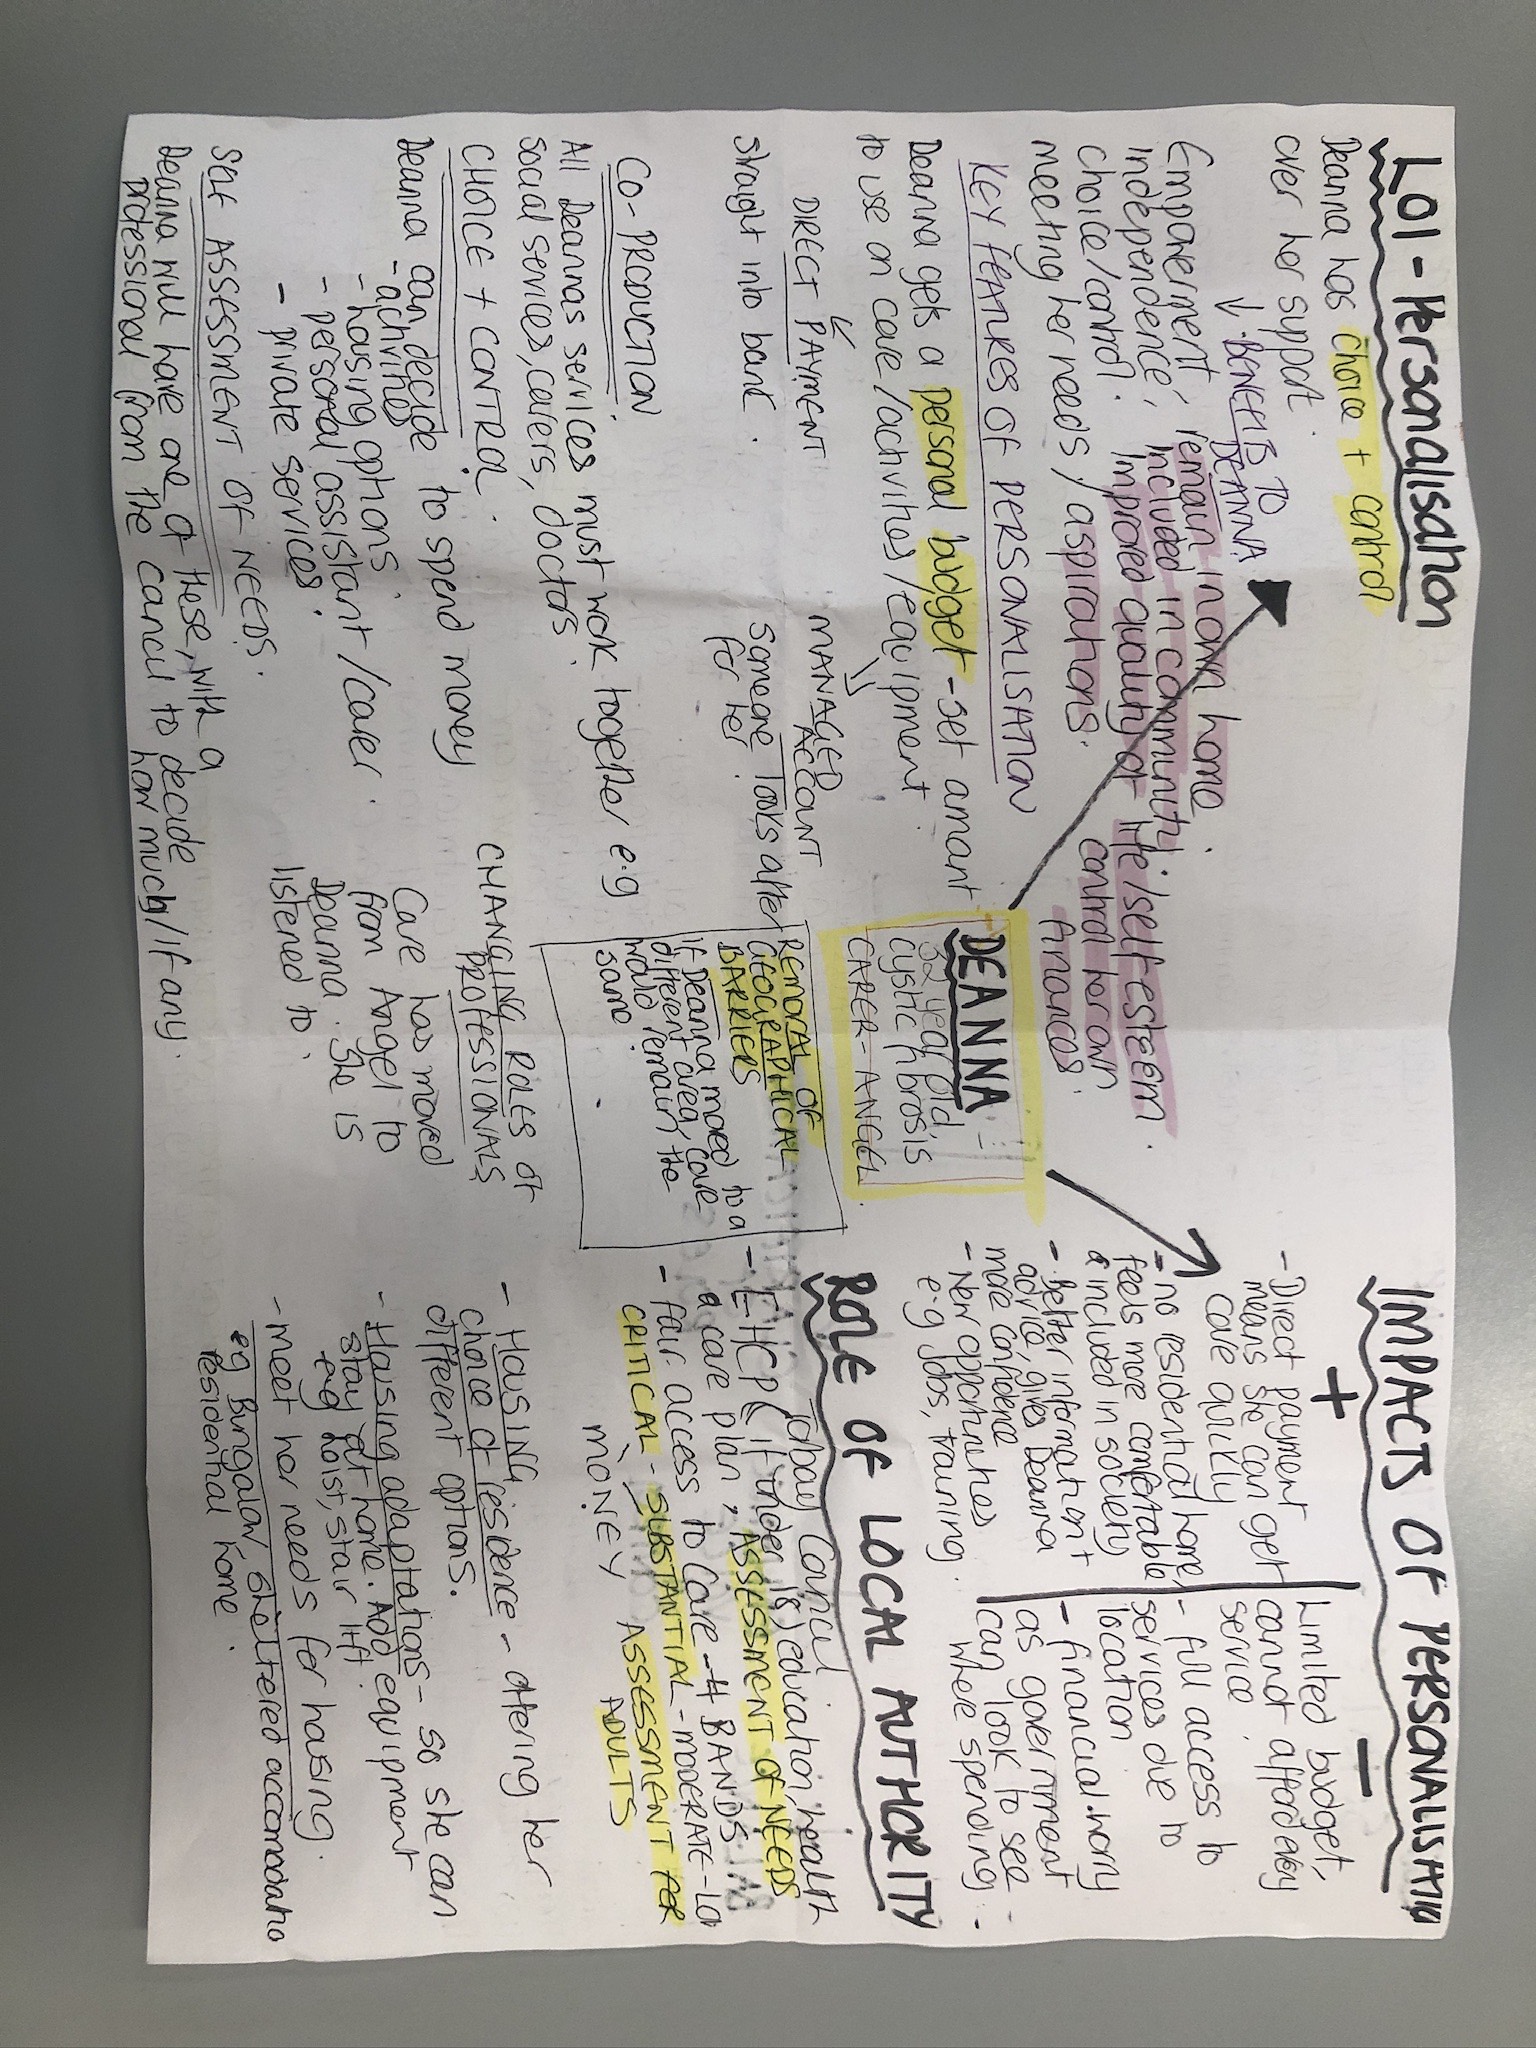 LO1 - Personalisation
Deanna has choice + control
over her support.
↓ BENEFITS TO
DEANNA
Empowerment, remain in own home,
independence, included in community,
choice/control. Improved quality of life/self esteem.
meeting her needs/aspirations.
control her own
finances.
KEY FEATURES OF PERSONALISATION
Deanna gets a personal budget - set amount
to use on care/activities/equipment.
DIRECT PAYMENT
straight into bank.
MANAGED
ACCOUNT
Someone looks after
for her.
CO-PRODUCTION
All Deannas services must work together e.g
social services, carers, doctors.
CHOICE + CONTROL.
Deanna can decide to spend money
- activities
- housing options
- personal assistant/carer.
- private services.
Self ASSESSMENT OF NEEDS.
Deanna will have one of these, with a
professional from the council to decide
how much/if any.
DEANNA -
32 year old,
cystic fibrosis
CARER - ANGEL.
REMOVAL OF
GEOGRAPHICAL
BARRIERS
If Deanna moved to a
different area, care
would remain the
same.
CHANGING ROLES OF
PROFESSIONALS
Care has moved
from Angel to
Deanna. She is
listened to.
IMPACTS OF PERSONALISATION
+
- Direct payment
means she can get
care quickly
- no residential home,
feels more comfortable
& included in society
- Better information +
advice, gives Deanna
more confidence
- New opportunities
e.g jobs, training.
-
Limited budget,
cannot afford every
service.
- full access to
services due to
location
- financial worry
as government
can look to see
where spending
ROLE OF LOCAL AUTHORITY
Council
- EHCP (if under 18) education, health
a care plan, ASSESSMENT OF NEEDS
- fair access to care - 4 BANDS
CRITICAL - SUBSTANTIAL - MODERATE - LOW
MONEY
ASSESSMENT FOR
ADULTS
- Housing
choice of residence - offering her
different options.
- Housing adaptations - so she can
stay at home. Add equipment
e.g hoist, stair lift
- meet her needs for housing.
eg Bungalow, sheltered accomodatio
residential home.